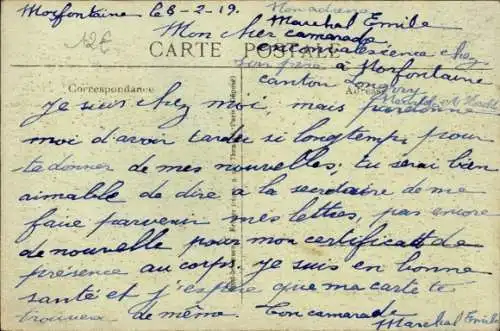 Morfontaine le 6-2-19.
Mon adresse
Marchal Emile
Mon cher camarade
en convalescence chez
12€
CARTE POSTALE
son frère à Morfontaine
canton Longwy
Meurthe et Moselle
Correspondance
Adresse
Je suis chez moi, mais pardonne
moi d'avoir tarder si longtemps pour
te donner de mes nouvelles; tu serai bien
aimable de dire à la secretaire de me
faire parvenir mes lettres, pas encore
de nouvelle pour mon certificatt de
présence au corps. Je suis en bonne
santé et j'espère que ma carte te
trouvera de même. Ton camarade
Marchal Emile